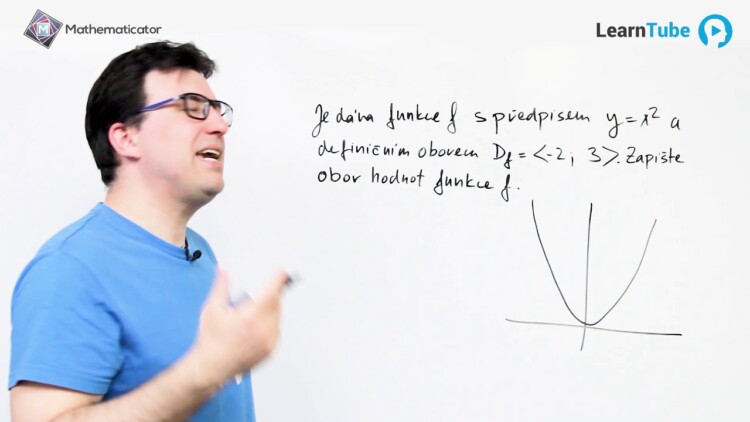 Mathematicator
LearnTube
Je dána funkce f s předpisem y = x² a
definičním oborem Df = <-2; 3>. Zapište
obor hodnot funkce f.